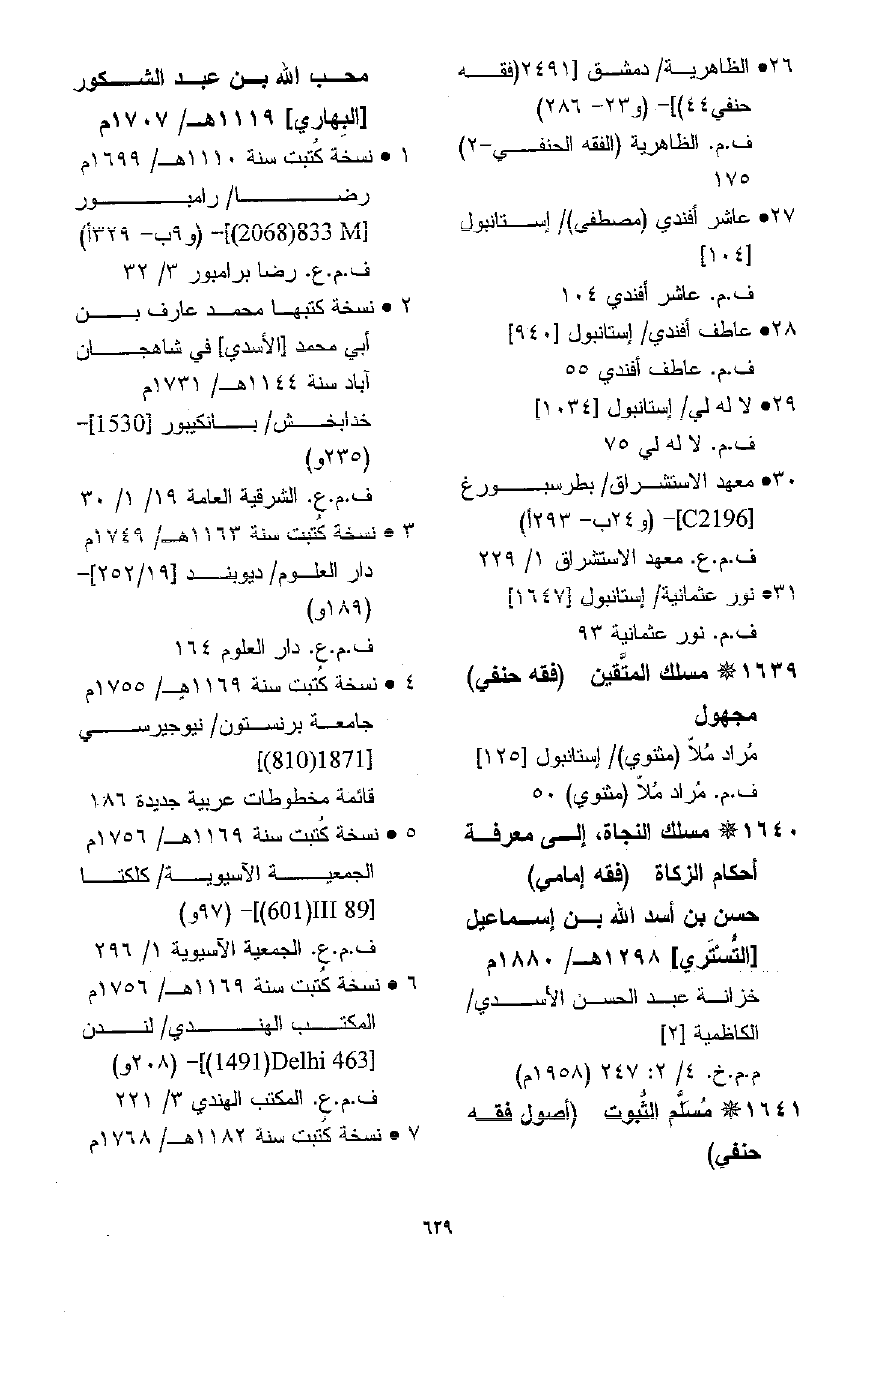 ٢٦• الظاهرية/ دمشق [٢٤٩١(فقه
حنفي٤٤)]- (و٢٣- ٢٨٦)
ف.م. الظاهرية (الفقه الحنفي-٢)
١٧٥
٢٧• عاشر أفندي (مصطفى)/ إستانبول
[١٠٤]
ف.م. عاشر أفندي ١٠٤
٢٨• عاطف أفندي/ إستانبول [٩٤٠]
ف.م. عاطف أفندي ٥٥
٢٩• لا له لي/ إستانبول [١٠٣٤]
ف.م. لا له لي ٧٥
٣٠• معهد الاستشراق/ بطرسبورغ
[C2196]- (و٢٤ب- ٢٩٣أ)
ف.م.ع. معهد الاستشراق ١/ ٢٢٩
٣١• نور عثمانية/ إستانبول [١٦٤٧]
ف.م. نور عثمانية ٩٣
١٦٣٩❋ مسلك المتَّقين (فقه حنفي)
مجهول
مُراد مُلاّ (مثنوي)/ إستانبول [١٢٥]
ف.م. مُراد مُلاّ (مثنوي) ٥٠
١٦٤٠❋ مسلك النجاة، إلى معرفة
أحكام الزكاة (فقه إمامي)
حسن بن أسد الله بن إسماعيل
[التُستَري] ١٢٩٨هـ/ ١٨٨٠م
خزانة عبد الحسن الأسدي/
الكاظمية [٢]
م.م.خ. ٤/ ٢: ٢٤٧ (١٩٥٨م)
١٦٤١❋ مُسلَّم الثُبوت (أصول فقه
حنفي)
محب الله بن عبد الشكور
[البهاري] ١١١٩هـ/ ١٧٠٧م
١ • نسخة كُتبت سنة ١١١٠هـ/ ١٦٩٩م
رضا/ رامبور
[833 M(2068)]- (و٩ب- ٣٢٩أ)
ف.م.ع. رضا برامبور ٣/ ٣٢
٢ • نسخة كتبها محمد عارف بن
أبي محمد [الأسدي] في شاهجان
آباد سنة ١١٤٤هـ/ ١٧٣١م
خدابخش/ بانكيبور [1530]-
(٢٣٥و)
ف.م.ع. الشرقية العامة ١٩/ ١/ ٣٠
٣ • نسخة كُتبت سنة ١١٦٣هـ/ ١٧٤٩م
دار العلوم/ ديوبند [٢٥٢/١٩]-
(١٨٩و)
ف.م.ع. دار العلوم ١٦٤
٤ • نسخة كُتبت سنة ١١٦٩هـ/ ١٧٥٥م
جامعة برنستون/ نيوجيرسي
[1871(810)]
قائمة مخطوطات عربية جديدة ١٨٦
٥ • نسخة كُتبت سنة ١١٦٩هـ/ ١٧٥٦م
الجمعية الآسيوية/ كلكتا
[III 89(601)]- (٩٧و)
ف.م.ع. الجمعية الآسيوية ١/ ٢٩٦
٦ • نسخة كُتبت سنة ١١٦٩هـ/ ١٧٥٦م
المكتب الهندي/ لندن
[Delhi 463(1491)]- (٢٠٨و)
ف.م.ع. المكتب الهندي ٣/ ٢٢١
٧ • نسخة كُتبت سنة ١١٨٢هـ/ ١٧٦٨م
٦٢٩